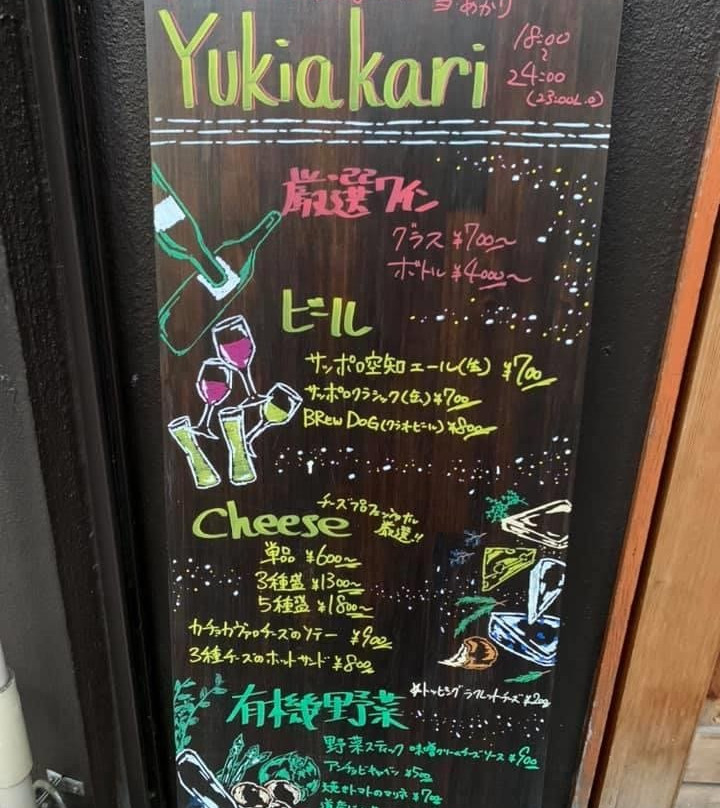 Yukiakari
18:00
～
24:00
(23:00L.O)
厳選ワイン
グラス ¥700～
ボトル ¥4000～
ビール
サッポロ空知エール(生) ¥700
サッポロクラシック(生) ¥700
BREW DOG(クラフトビール) ¥800
Cheese
チーズプロフェッショナル
厳選!!
単品 ¥600～
3種盛 ¥1300～
5種盛 ¥1800～
カチョカヴァロチーズのソテー ¥900
3種チーズのホットサンド ¥800
※トッピング ラクレットチーズ ¥200
有機野菜
野菜スティック 味噌クリームチーズソース ¥900
アンチョビキャベツ ¥500
焼きトマトのマリネ ¥700